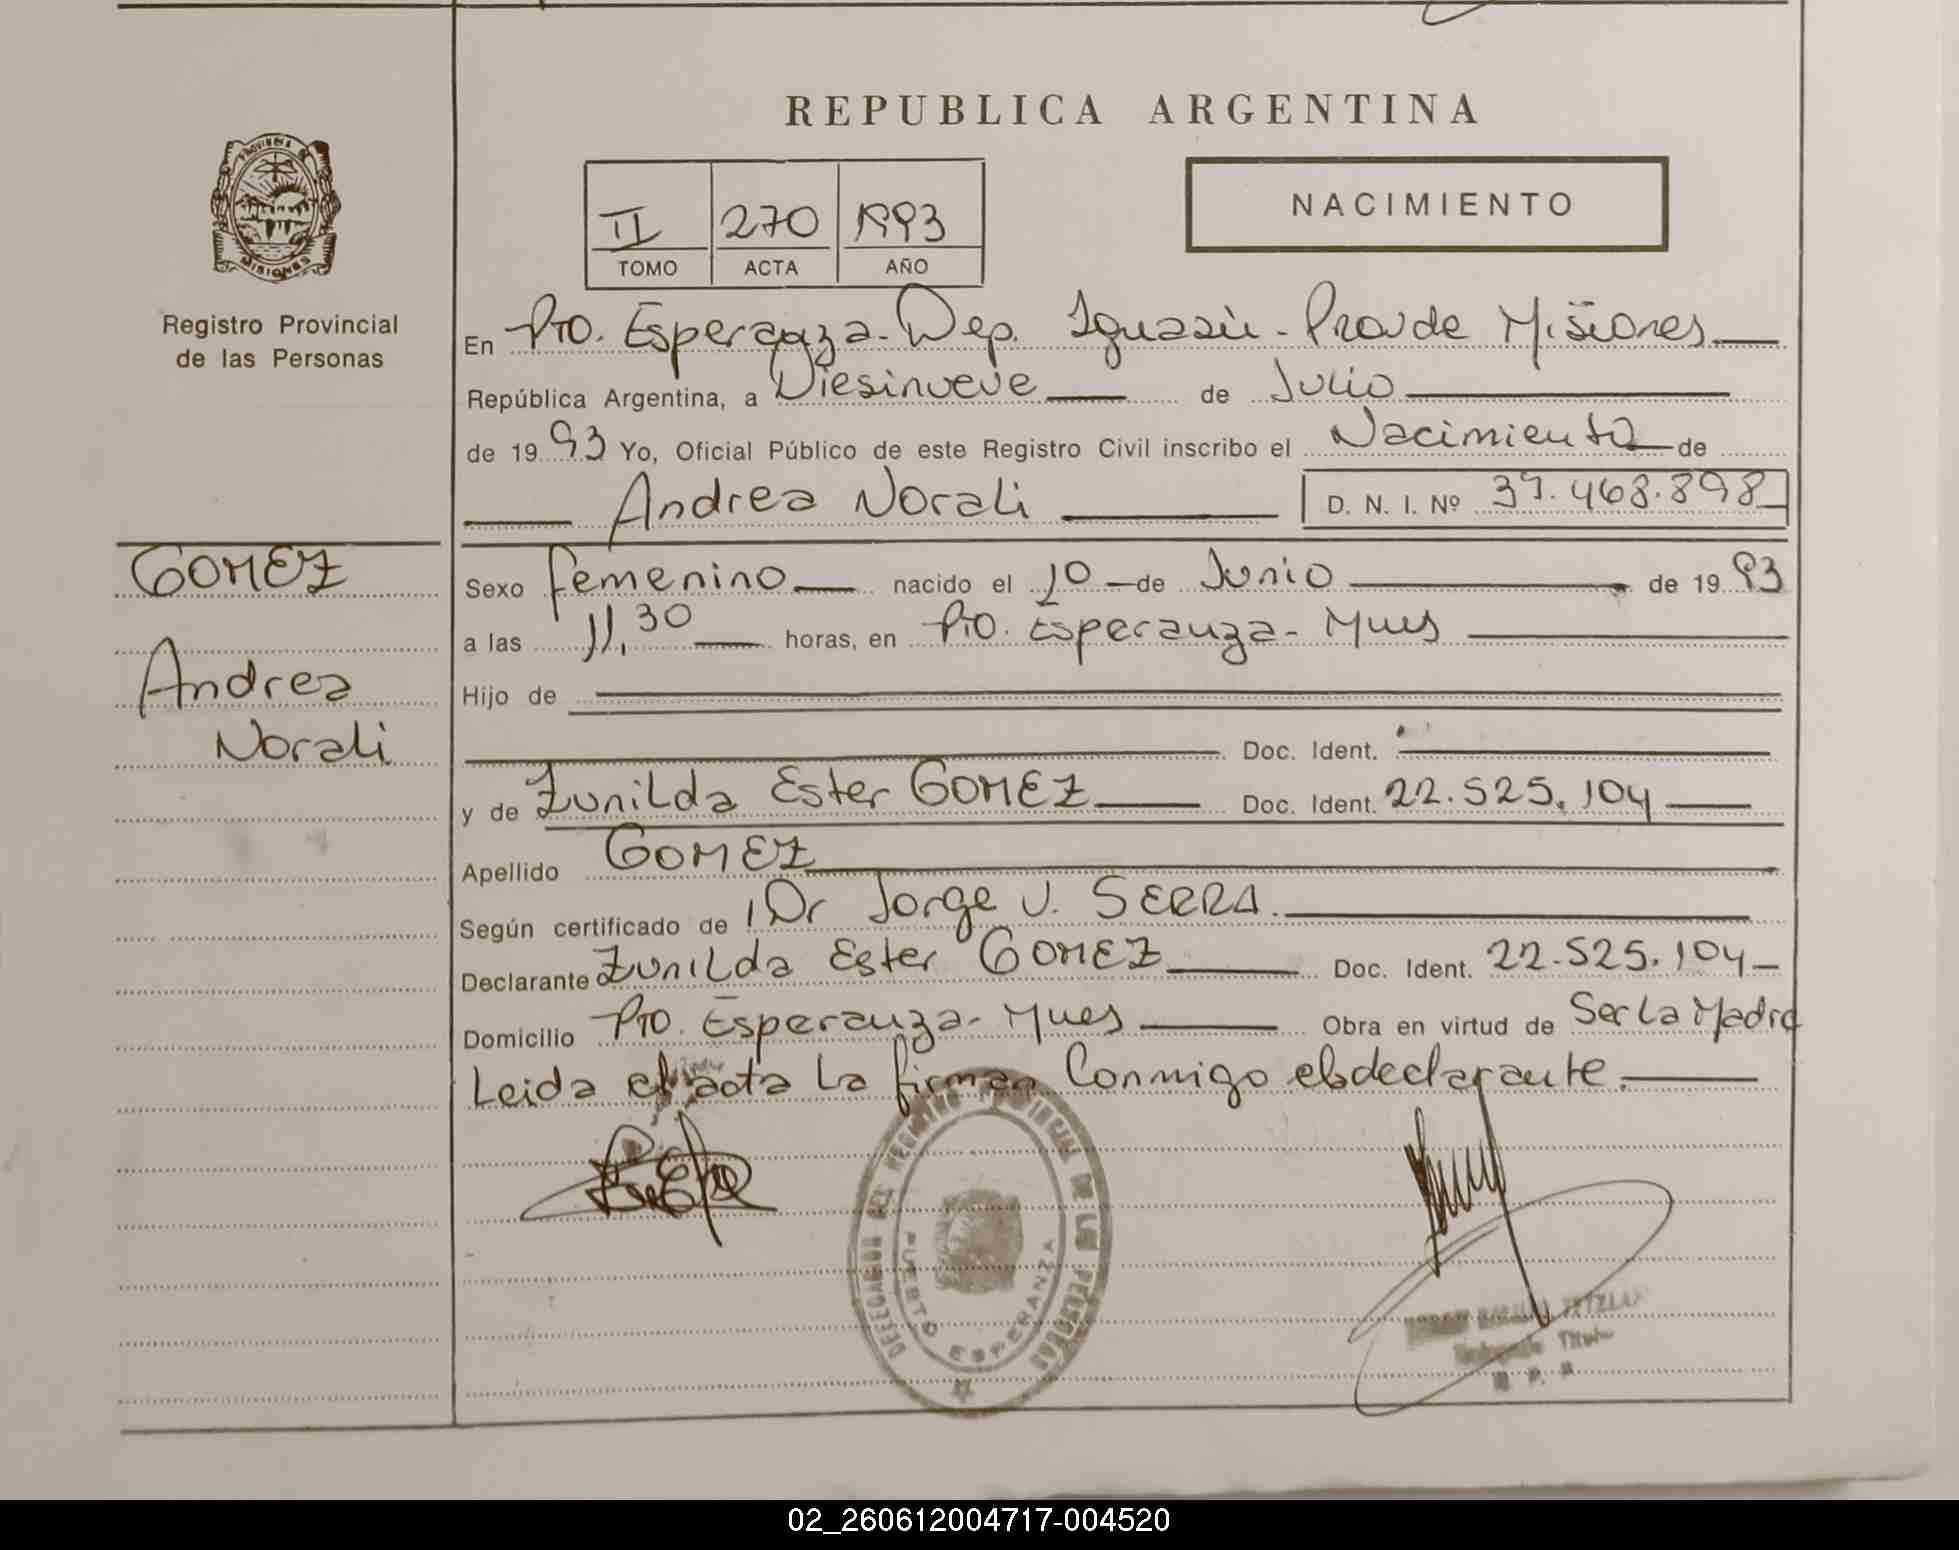 REPUBLICA ARGENTINA
PROVINCIA DE
MISIONES
Registro Provincial
de las Personas
II 270 1993
TOMO ACTA AÑO
NACIMIENTO
En Pto. Esperanza - Dep. Iguazú - Prov de Misiones
República Argentina, a Diesinueve de Julio
de 19 93 Yo, Oficial Público de este Registro Civil inscribo el Nacimiento de
Andrea Norali D. N. I. Nº 37.468.898
GOMEZ
Andrea
Norali
Sexo femenino nacido el 10 de Junio de 19 93
a las 11,30 horas, en Pto. Esperanza - Mnes
Hijo de
Doc. Ident.
y de Zunilda Ester GOMEZ Doc. Ident. 22.525.104
Apellido GOMEZ
Según certificado de Dr Jorge V. SERRA.
Declarante Zunilda Ester GOMEZ Doc. Ident. 22.525.104
Domicilio Pto. Esperanza - Mnes Obra en virtud de Ser La Madre
Leida el acta La firman Conmigo el declarante.
DELEGACION DEL REGISTRO PROVINCIAL DE LAS PERSONAS
PUERTO ESPERANZA
02_260612004717-004520